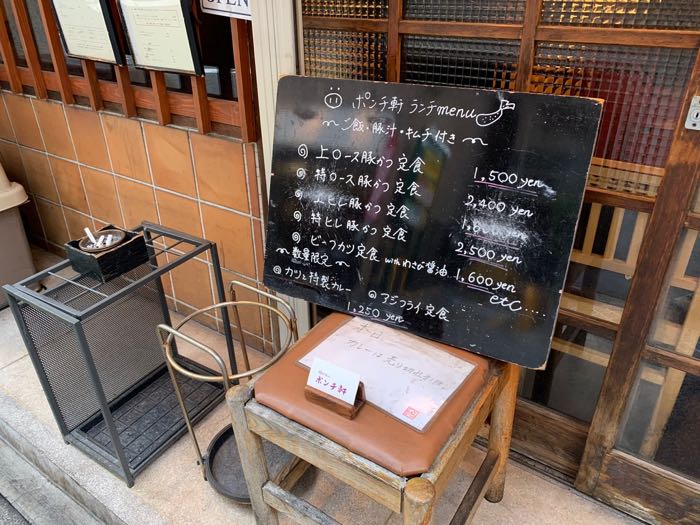 OPEN
ポンチ軒 ランチmenu
〜ご飯・豚汁・キムチ付き〜
上ロース豚かつ定食 1,500 yen
特ロース豚かつ定食 2,400 yen
ヒレ豚かつ定食
特ヒレ豚かつ定食 2,500 yen
ビーフカツ定食 withわさび醤油 1,600 yen
〜数量限定〜 etc....
カツと特製カレー
アジフライ定食
1,250 yen
カレーは売り切れました
ポンチ軒